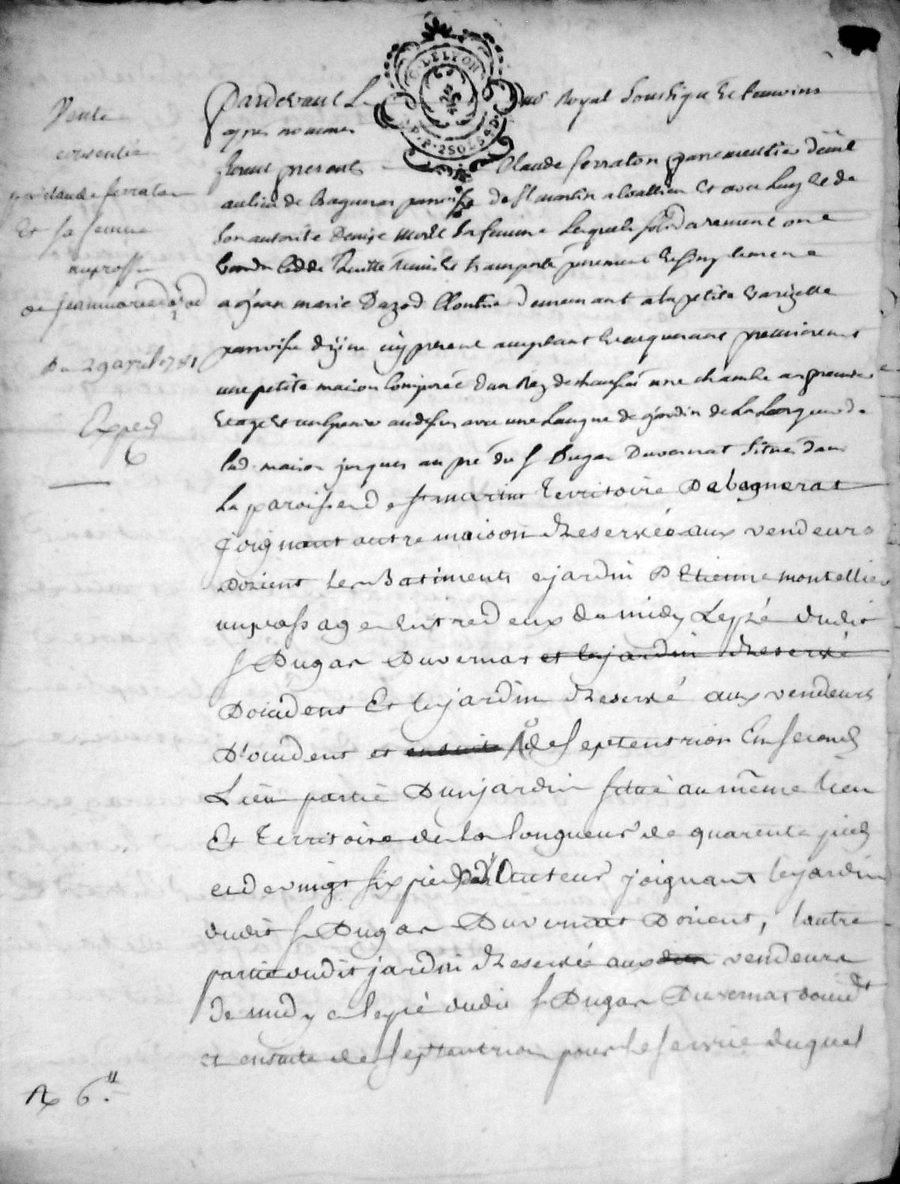 Vente
consentie
par claude ferraton
Et sa femme
au proffit
de Jean marie dazod
Du 29 avril 1781
Exped
G. LELYON
P.P. 2 SOLS 4 D.
Pardevant L Royal Soussigné Et temoins
apres nommés
furent presents Claude ferraton parementier d'une
au lieu de Bagneras paroisse de St martin et avec Luy Et de
Son autorité Denize morel Sa femme Lesquels Solidairement ont
Vendu Cedde quitté remis Et transporté purement Et Simplement
a Jean marie Dazod demeurant a la petite Varizelle
paroisse d'izieu icy present acceptant Et acquerant premierement
une petite maison Composée d'un Rez de chaussée une chambre au premier
Etage Et un Grenier au dessus avec une Langue de jardin de La Largeur de
Lad. maison jusques au pré du S Dugas Duvernat Située dans
La paroisse de St martin Territoire De bagnerat
joignant autre maison Reservée aux vendeurs
Dorient les Batiments et jardin D'Etienne montellier
un passage Entre deux du midy Le pré dudit
S Dugas Duvernas et le jardin Reservé
Doccident Et le jardin Reservé aux vendeurs
D'occident et ensuite de Septentrion En Second
Lieu partie D'un jardin Situé au même lieu
Et Territoire de la longueur de quarente pieds
et de vingt six pieds d'hauteur joignant le jardin
dudit S Dugas Duvernat Dorient, l'autre
partie dudit jardin Reservée aux vendeurs
De midy et le pré dudit S Dugas Duvernas doccidt
et ensuite de Septentrion pour le Service duquel
6.